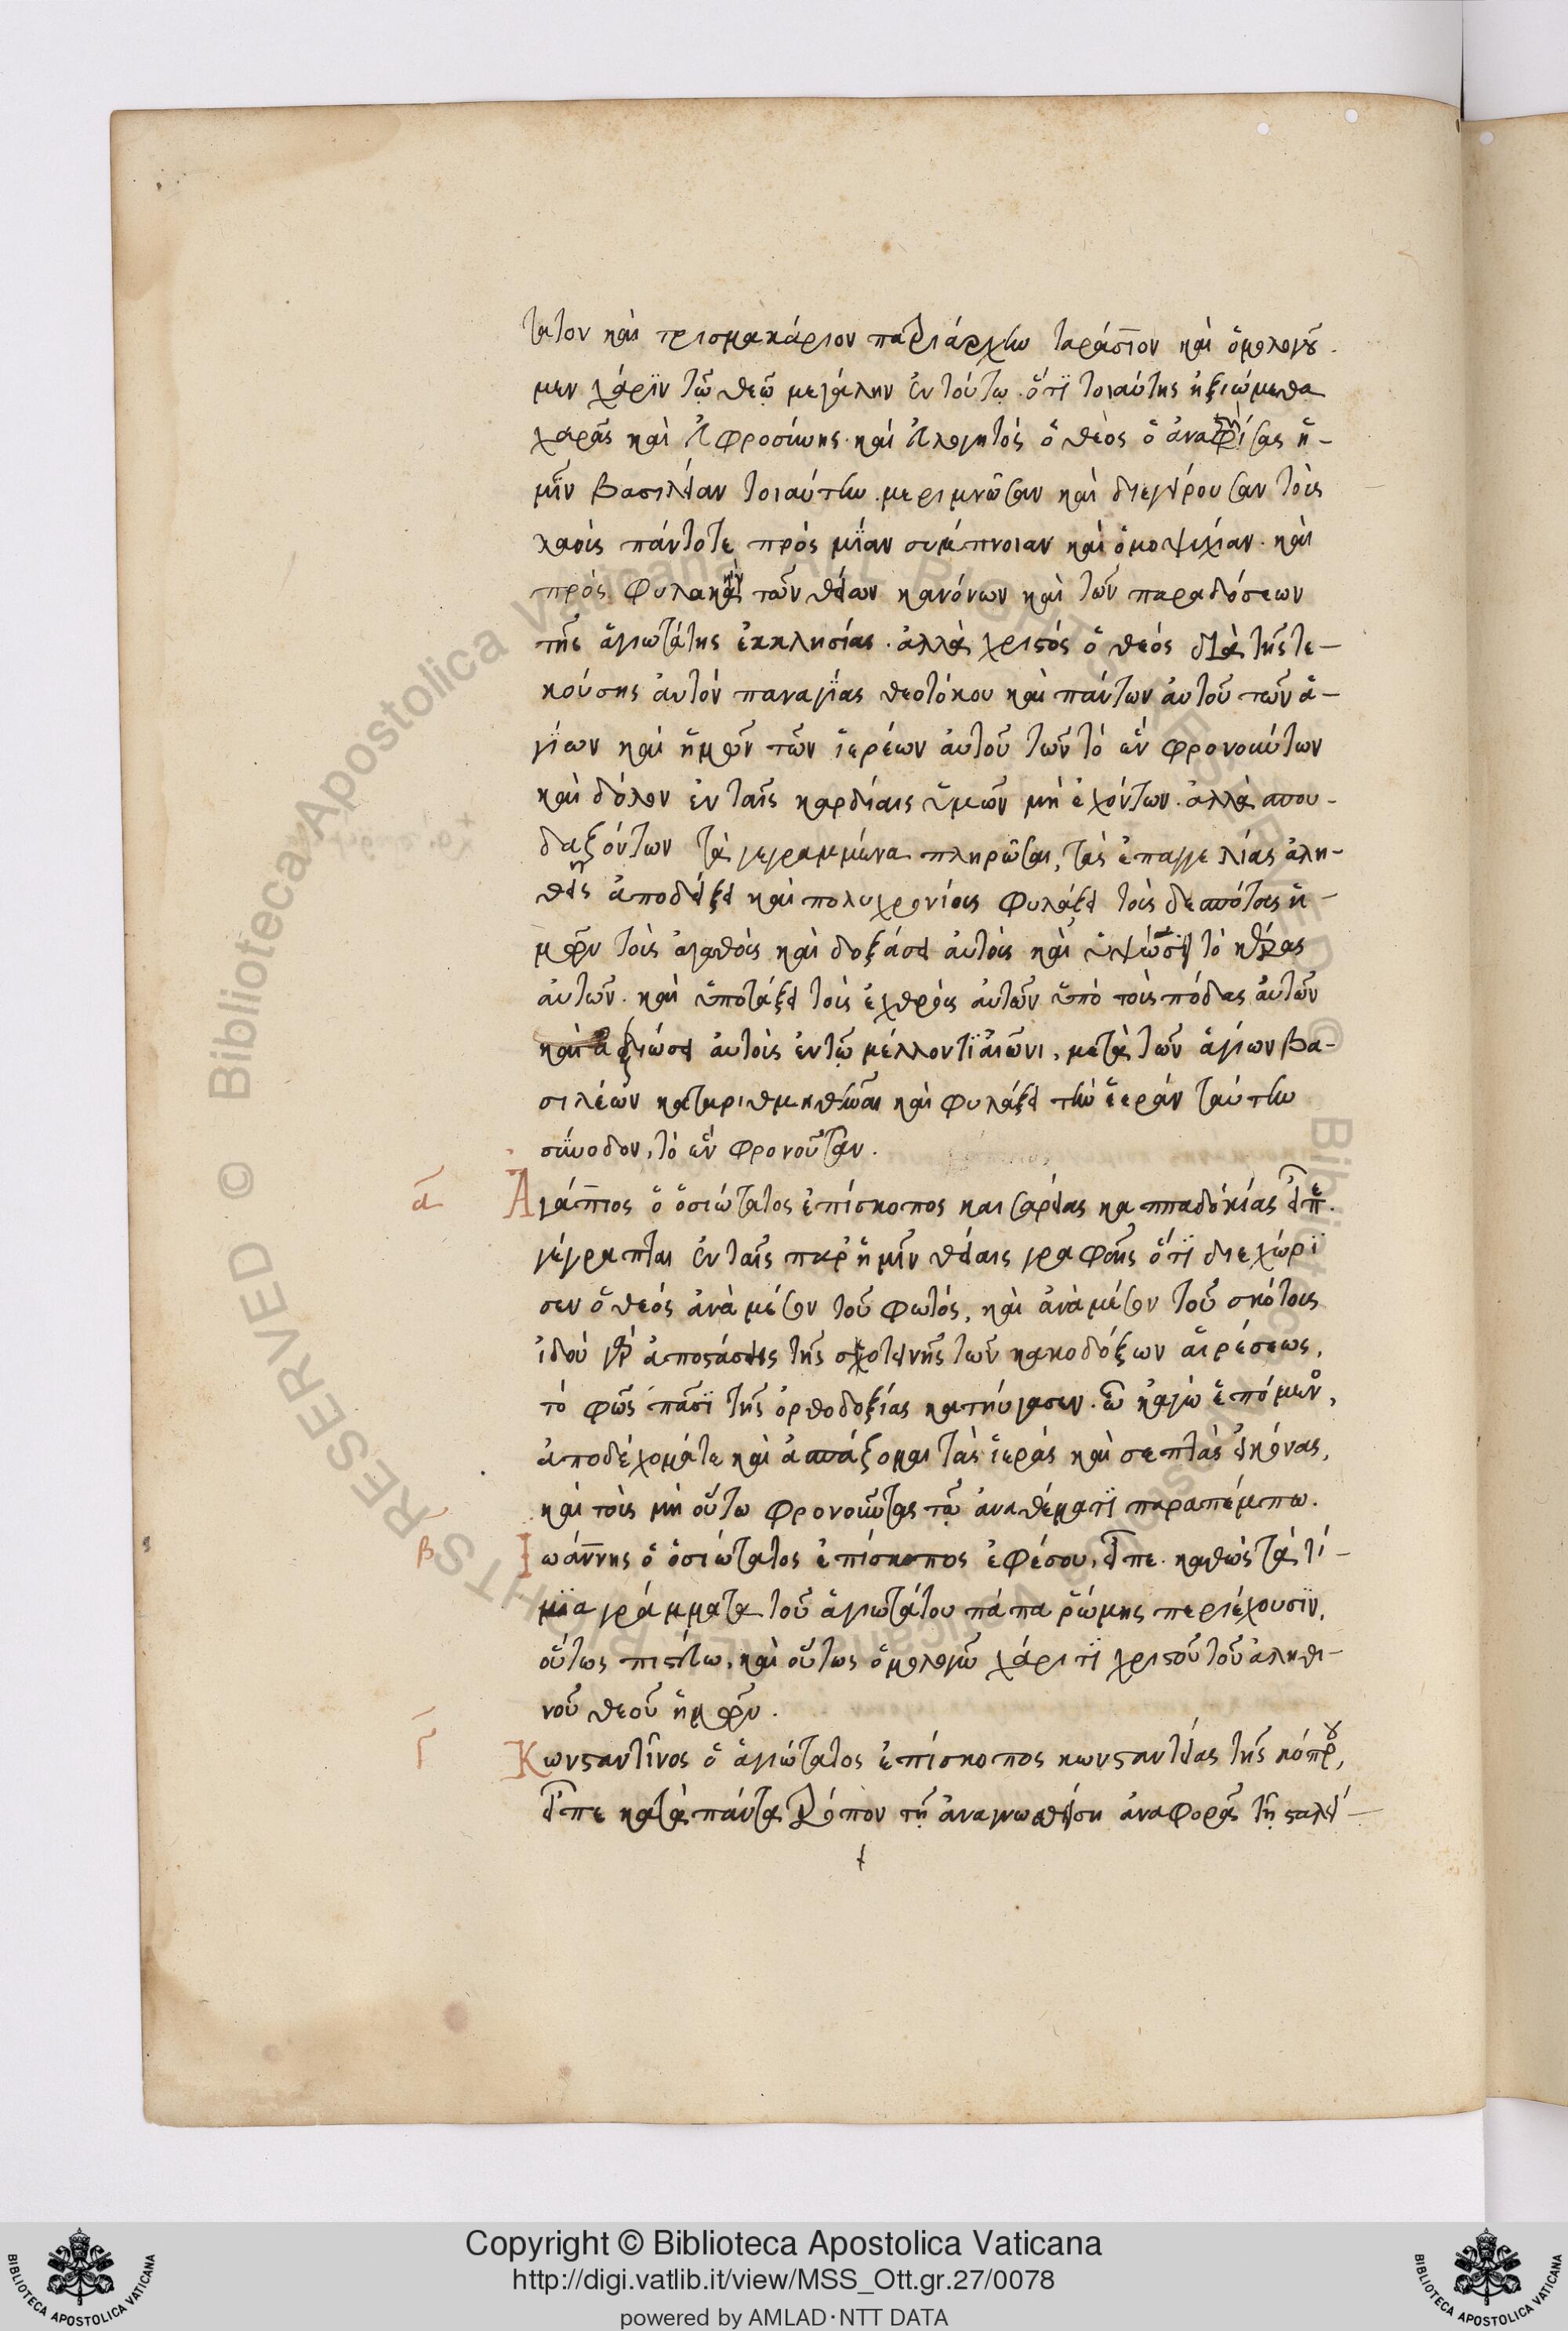 τατον καὶ τρισμακάριον πατριάρχην ταράσιον καὶ ὁμολογοῦ-
μεν χάριν τῷ θεῷ μεγάλην ἐν τούτῳ. ὅτι τοιαύτης ἠξιώμεθα
χαρᾶς καὶ εὐφροσύνης. καὶ εὐλογητὸς ὁ θεὸς ὁ ἀναστήσας ἡ-
μῖν βασιλείαν τοιαύτην. μεριμνῶσαν καὶ διεγείρουσαν τοὺς
λαοὺς πάντοτε πρὸς μίαν σύμπνοιαν καὶ ὁμοψυχίαν. καὶ
πρὸς φυλακὴν τῶν θείων κανόνων καὶ τῶν παραδόσεων
τῆς ἁγιωτάτης ἐκκλησίας. ἀλλὰ χριστὸς ὁ θεὸς διὰ τῆς τε-
κούσης αὐτὸν παναγίας θεοτόκου καὶ πάντων αὐτοῦ τῶν ἁ-
γίων καὶ ἡμῶν τῶν ἱερέων αὐτοῦ τῶν τὸ ἓν φρονούντων
καὶ δόλον ἐν ταῖς καρδίαις ὑμῶν μὴ ἐχόντων. ἀλλὰ σπου-
δαζόντων τὰ γεγραμμένα πληρῶσαι, τὰς ἐπαγγελίας ἀλη-
θεῖς ἀποδείξει καὶ πολυχρονίους φυλάξει τοὺς δεσπότας ἡ-
μῶν τοὺς ἀγαθοὺς καὶ δοξάσει αὐτοὺς καὶ ὑψώσει τὸ κέρας
αὐτῶν. καὶ ὑποτάξει τοὺς ἐχθροὺς αὐτῶν ὑπὸ τοὺς πόδας αὐτῶν
καὶ ἀξιώσει αὐτοὺς ἐν τῷ μέλλοντι αἰῶνι, μετὰ τῶν ἁγίων βα-
σιλέων καταριθμηθῆναι καὶ φυλάξει τὴν ἱερὰν ταύτην
σύνοδον, τὸ ἓν φρονοῦσαν.
α Ἀγάπιος ὁ ὁσιώτατος ἐπίσκοπος καισαρείας καππαδοκίας εἶπε.
γέγραπται ἐν ταῖς παρ' ἡμῖν θείαις γραφαῖς ὅτι διεχώρι
σεν ὁ θεὸς ἀνὰ μέσον τοῦ φωτός, καὶ ἀνὰ μέσον τοῦ σκότους
ἰδοὺ γὰρ ἀποστάσεις τῆς σκοτεινῆς τῶν κακοδόξων αἱρέσεως,
τὸ φῶς πᾶσι τῆς ὀρθοδοξίας κατηύγασεν. ᾧ κἀγὼ ἑπόμενος,
ἀποδέχομαί τε καὶ ἀσπάζομαι τὰς ἱερὰς καὶ σεπτὰς εἰκόνας,
καὶ τοὺς μὴ οὕτω φρονοῦντας τῷ ἀναθέματι παραπέμπω.
β Ἰωάννης ὁ ὁσιώτατος ἐπίσκοπος ἐφέσου, εἶπε. καθὼς τὰ τί-
μια γράμματα τοῦ ἁγιωτάτου πάπα ῥώμης περιέχουσιν,
οὕτως πιστεύω, καὶ οὕτως ὁμολογῶ χάριτι χριστοῦ τοῦ ἀληθι-
νοῦ θεοῦ ἡμῶν.
γ Κωνσταντῖνος ὁ ἁγιώτατος ἐπίσκοπος κωνσταντείας τῆς κύπρου,
εἶπε κατὰ πάντα τρόπον τῇ ἀναγνωσθείσῃ ἀναφορᾷ τῇ σταλεί-
Copyright © Biblioteca Apostolica Vaticana
http://digi.vatlib.it/view/MSS_Ott.gr.27/0078
powered by AMLAD·NTT DATA